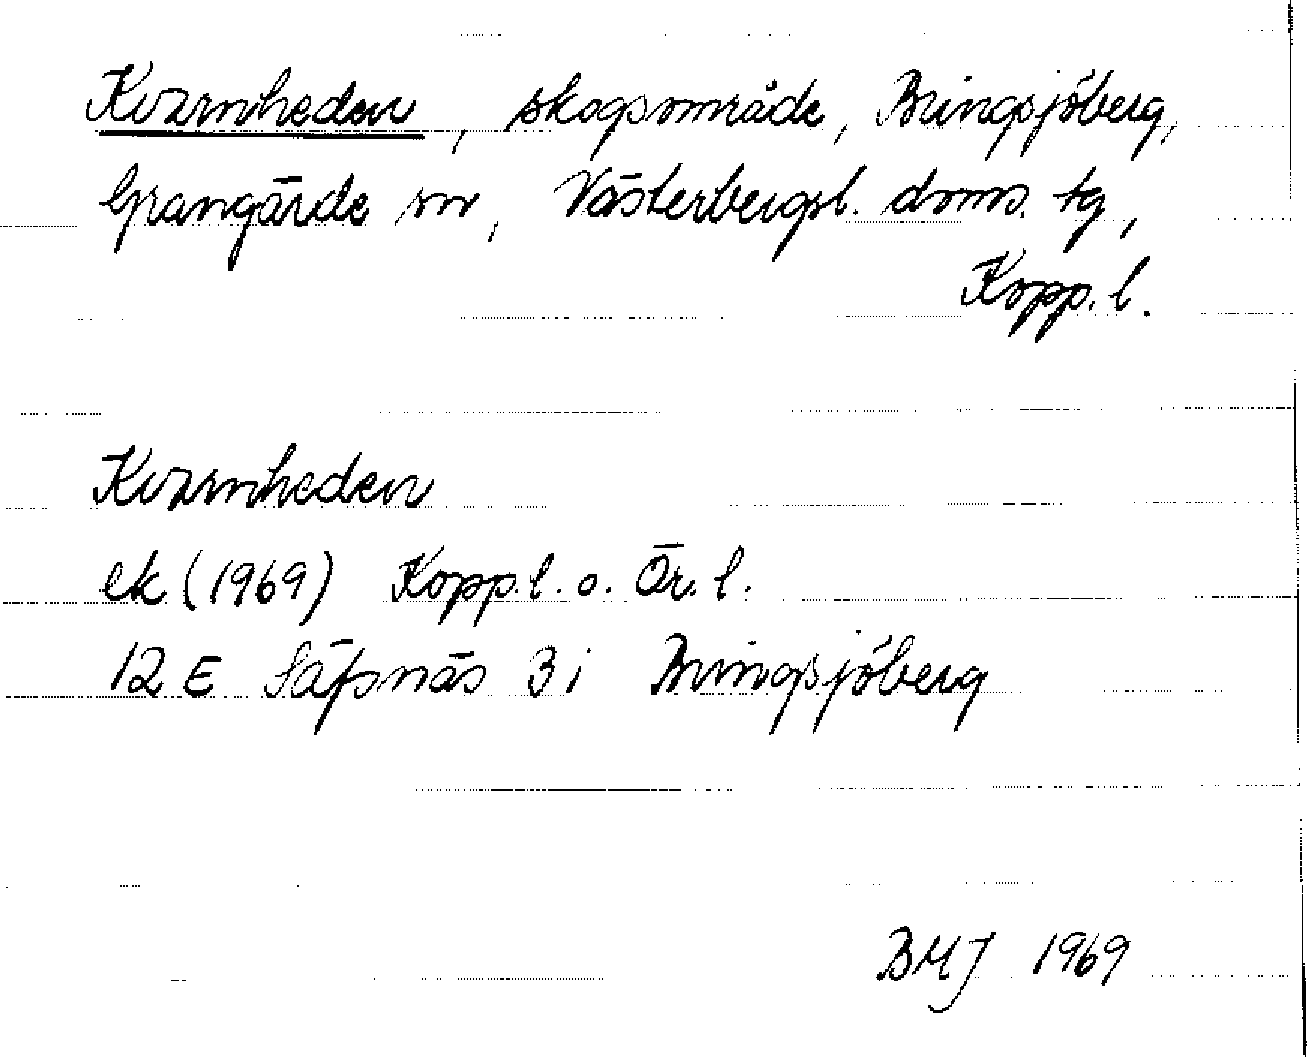 Kvarnheden, skogsområde, Bringsjöberg,
Grangärde sn, Västerbergsl. doms. tg,
Kopp. l.
Kvarnheden
ek (1969) Kopp. l. o. Ör. l.
12 E Säfsnäs 3 i Bringsjöberg
BMJ 1969